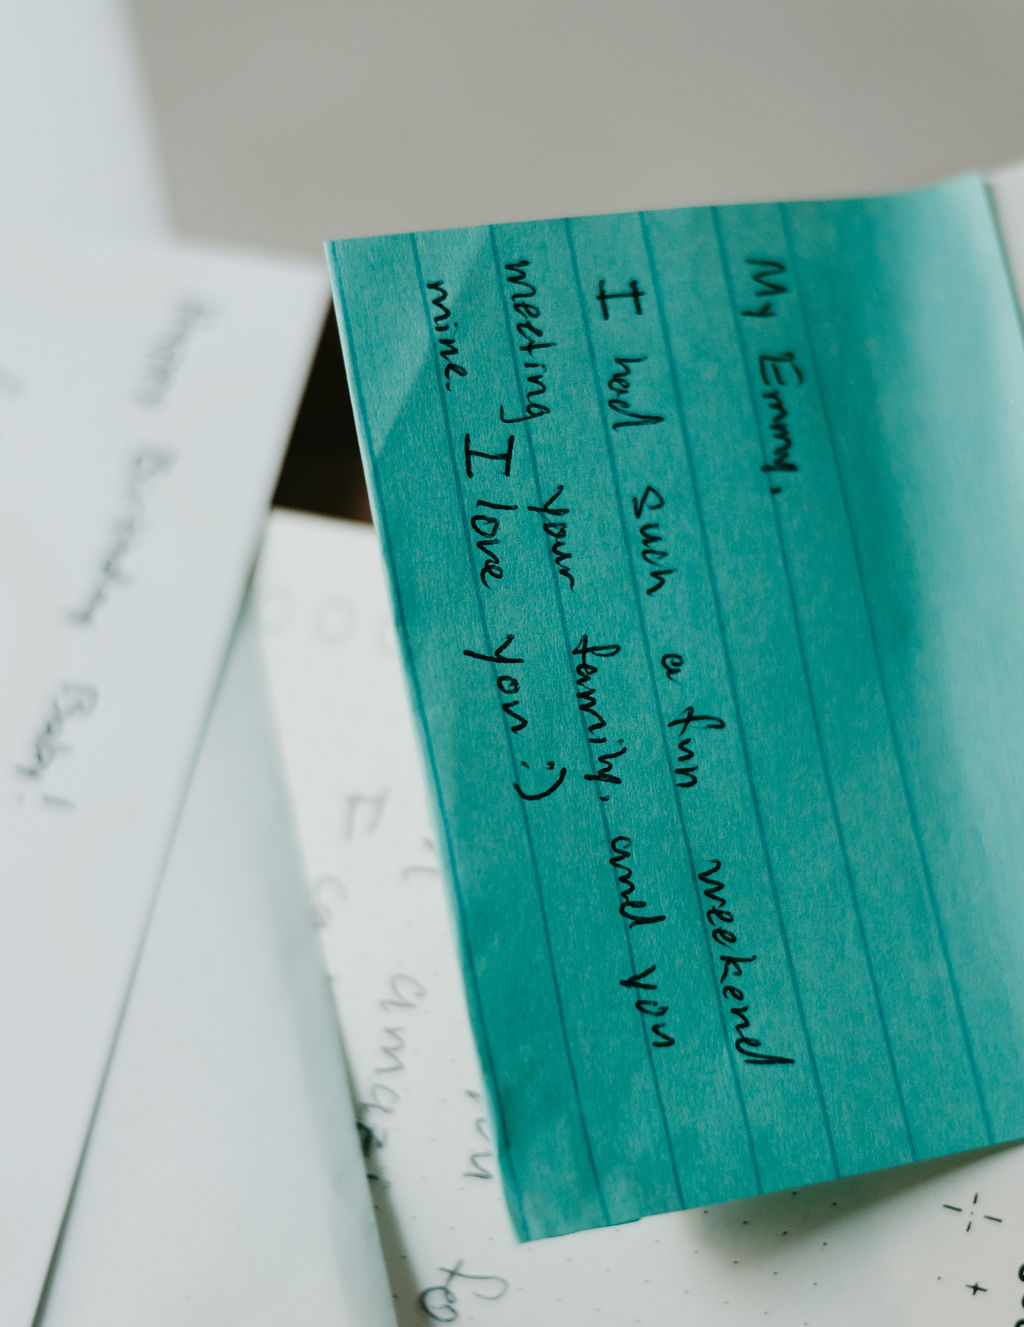 My Emmy,
I had such a fun weekend
meeting your family, and you
mine. I love you :)
Birthday Baby!
I